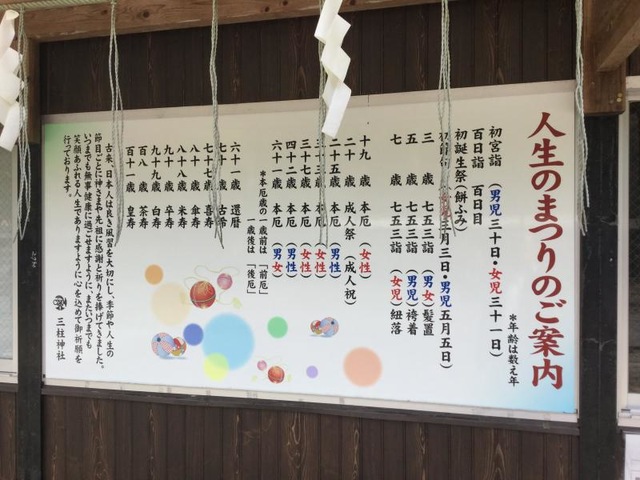 人生のまつりのご案内
＊年齢は数え年
初宮詣（男児 三十日・女児 三十一日）
百日詣 百日目
初誕生祭（餅ふみ）
三月三日・男児 五月五日）
三歳 七五三詣（男女）髪置
五歳 七五三詣（男児）袴着
七歳 七五三詣（女児）紐落
十九歳 本厄（女性）
二十歳 成人祭（成人祝）
二十五歳 本厄（男性）
三十三歳 本厄（女性）
三十七歳 本厄（女性）
四十二歳 本厄（男性）
六十一歳 本厄（男女）
＊本厄歳の一歳前は「前厄」
一歳後は「後厄」
六十一歳 還暦
七十歳 古希
七十七歳 喜寿
八十歳 傘寿
八十八歳 米寿
九十歳 卒寿
九十九歳 白寿
百八歳 茶寿
百十一歳 皇寿
古来、日本人は良き風習を大切にし、季節や人生の
節目ごとに神さまや先祖に感謝と祈りを捧げてきました。
いつまでも無事健康に過ごせますように、またいつまでも
笑顔あふれる人生でありますように心を込めて御祈願を
行っております。
三柱神社